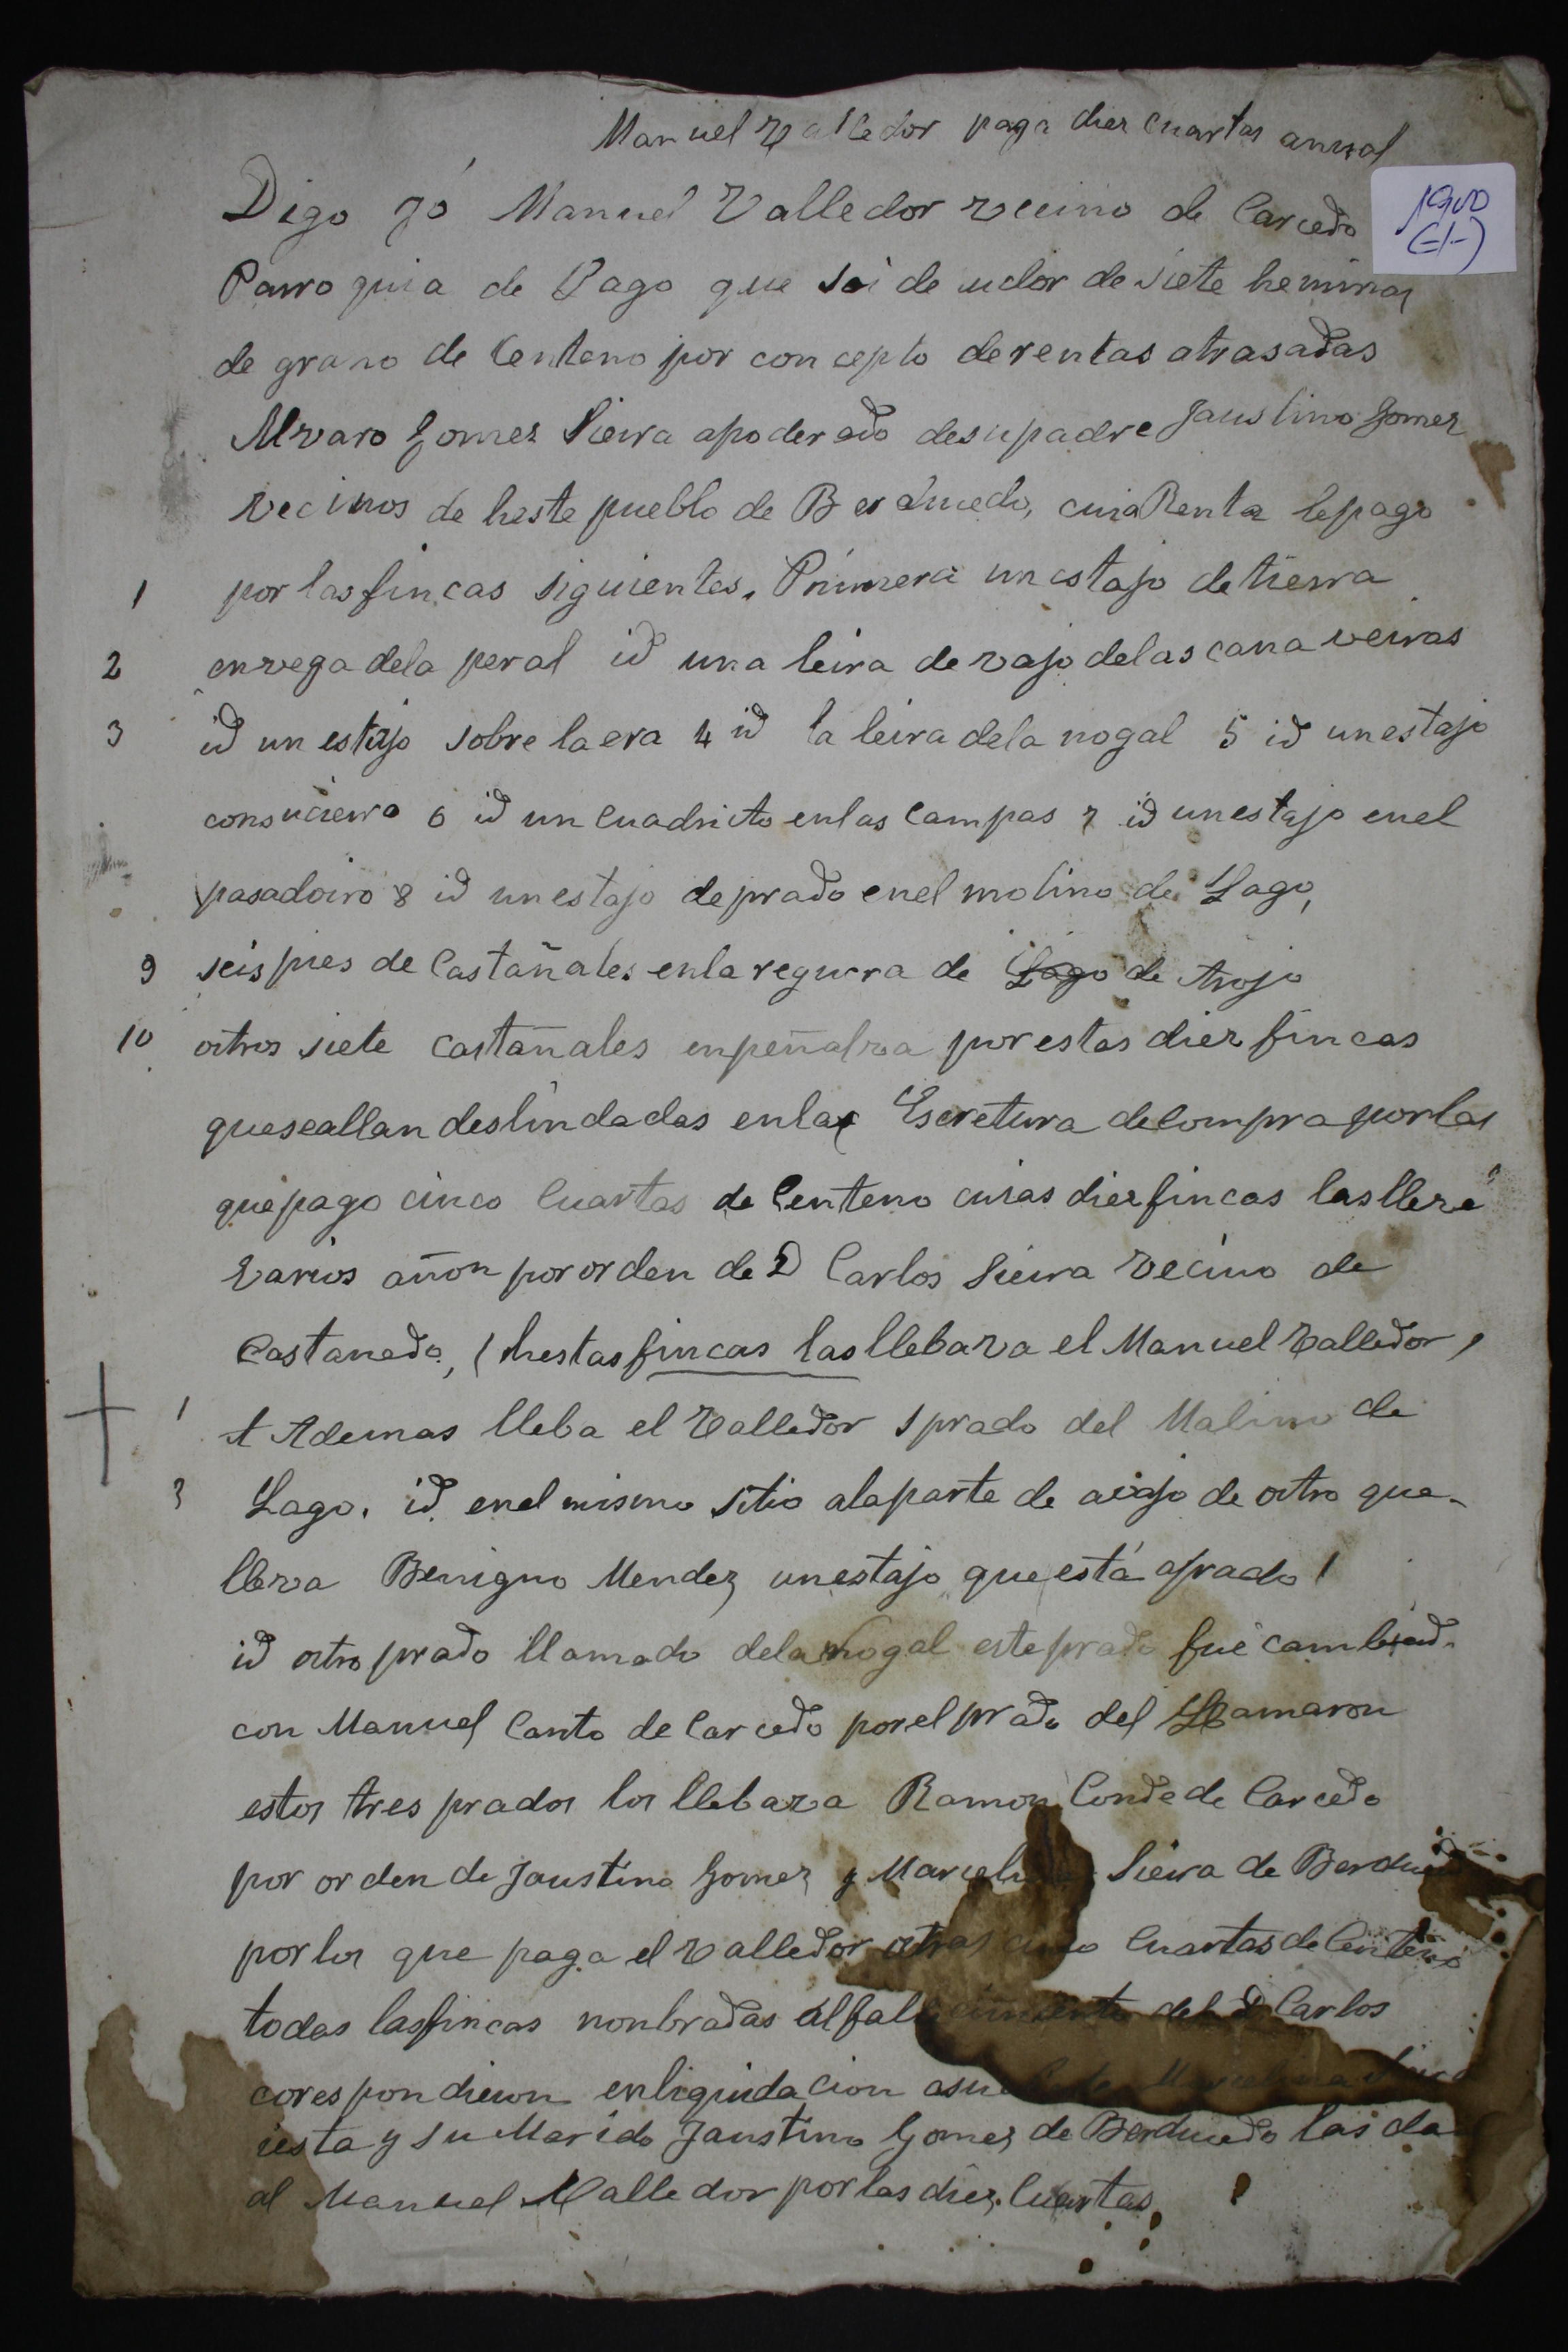 Manuel Valledor paga diez cuartas anual
1900
(-/-)
Digo yó Manuel Valledor vecino de Carcedo
Parroquia de Lago que soi de udor de siete heminas
de grano de Centeno por concepto de rentas atrasadas
Alvaro Gomez Sierra apoderado de su padre Faustino Gomez
vecinos de heste pueblo de Berducedo, cuia Renta le pago
1 por las fincas siguientes. Primera un estajo de tierra
2 en vega de la peral id una leira de vajo de las cana veiras
3 id un estajo sobre la era 4 id la leira de la nogal 5 id un estajo
con sucierro 6 id un Cuadrito en las Campas 7 id un estajo en el
pasadoiro 8 id un estajo de prado en el molino de Lago,
9 seis pies de Castañales en la reguera de Lago de trojo
10 oitros siete castañales en peñalva por estas diez fincas
que se allan deslindadas en la Escretura de Compra por las
que pago cinco Cuartas de Centeno cuias diez fincas las llevé
varios añon por orden de D Carlos Sierra vecino de
Castanedo, (hestas fincas las llebava el Manuel Valledor,
1 A Ademas lleba el Valledor 1 prado del Malino de
3 Lago. id en el mismo sitio a la parte de avajo de oitro que-
lleva Benigno Mendez un estajo que está aprado 1
id oitro prado llamado de la Nogal este prado fué cambiad.
con Manuel Canto de Carcedo por el prado del Llamaron
estos tres prados los llebava Ramon Conde de Carcedo
por orden de Faustino Gomez y Sierra de
por los que paga el Valledor otras Cuartas de Centeno
todas las fincas nonbradas al fallecimiento del D Carlos
corespondieron en liquidacion
iesta y su Marido Faustino Gomez de Berducedo las da
al Manuel Valledor por las diez Cuartas,